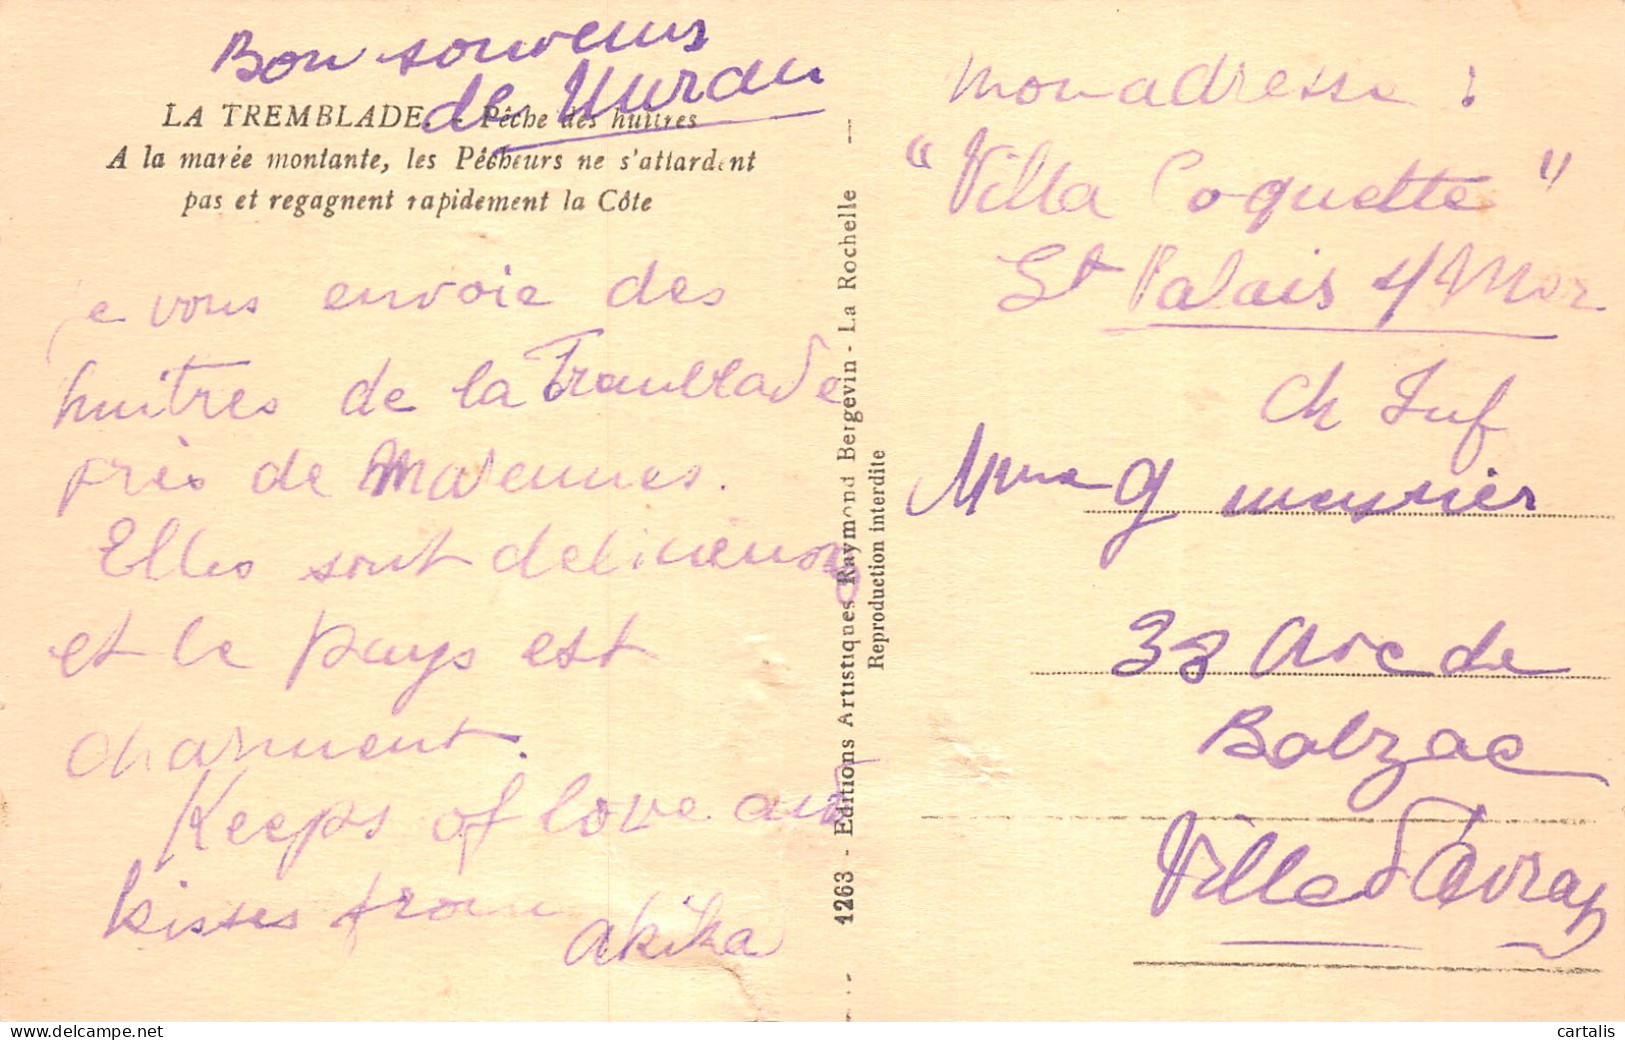 Bon souvenirs
de
LA TREMBLADE. - Pêche des huîtres
A la marée montante, les Pêcheurs ne s'attardent
pas et regagnent rapidement la Côte
je vous envoie des
huitres de la Tremblade
près de Marennes.
Elles sont delicieuses
et le pays est
charmant.
Keeps of love and
kisses from
akika
1263 - Editions Artistiques Raymond Bergevin - La Rochelle
Reproduction interdite
mon adresse :
"Villa Coquette"
St Palais s/Mer
Ch Inf
Mme G
33 Ave de
Balzac
Ville d'Avray
cartalis